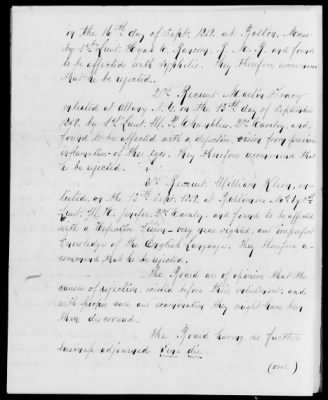 on the 16th day of Sept. 1858, at Boston, Mass
by 1st Lieut. R. M. R. and found
to be affected with Syphilis. They therefore recommend
that he be rejected.
2nd Recruit Martin Tracy
enlisted at Albany N.Y. on the 13th day of September
by 1st Lieut. Chambliss, 2nd Cavalry, and
found to be affected with a defective vision from previous
inflammation of the eyes. They therefore recommend that
he be rejected.
3rd Recruit William Klein, en-
listed, on the 12th Sept. 1858, at Baltimore Md. by 1st
Lieut. W. H. Jenifer, 2nd Cavalry, and found to be affected
with a Defective Vision - very near sighted, and imperfect
knowledge of the English Language. They therefore re-
commend that he be rejected.
The Board are of opinion that the
causes of rejection, existed before their enlistment, and
with proper care and examination they might have been
then discovered.
The Board having no further
business adjourned Sine die.
(over)